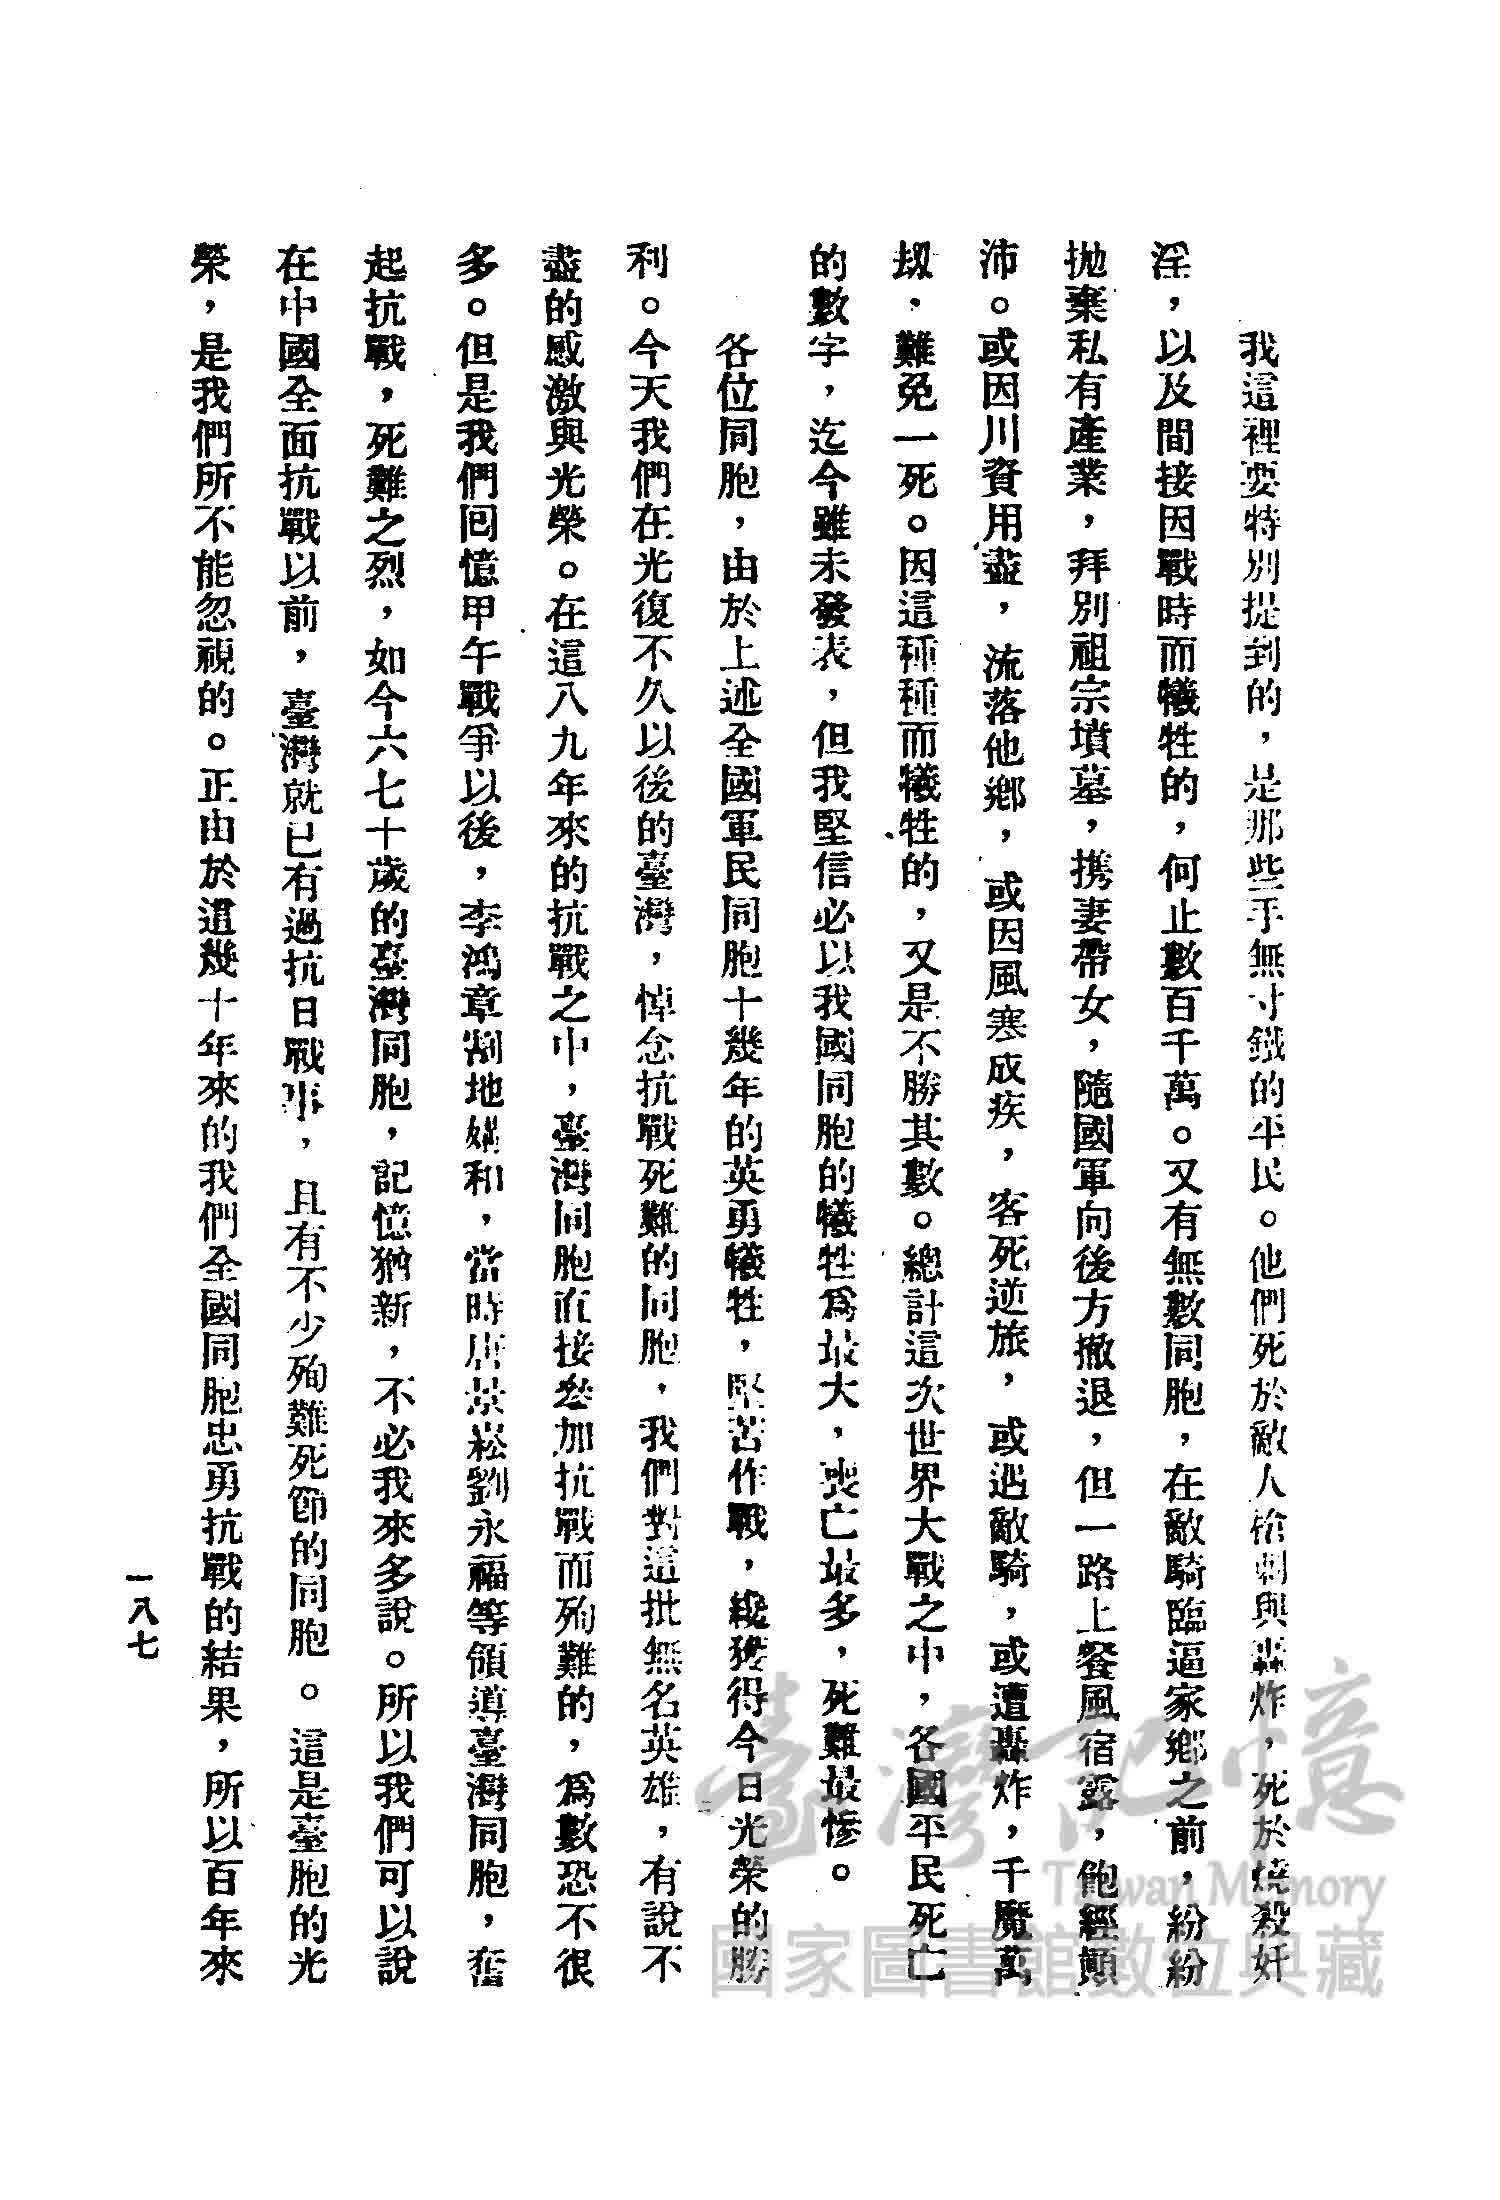 我這裡要特別提到的，是那些手無寸鐵的平民。他們死於敵人槍刺與轟炸，死於燒殺奸
淫，以及間接因戰時而犧牲的，何止數百千萬。又有無數同胞，在敵騎臨逼家鄉之前，紛紛
拋棄私有產業，拜別祖宗墳墓，携妻帶女，隨國軍向後方撤退，但一路上餐風宿露，飽經顛
沛。或因川資用盡，流落他鄉，或因風寒成疾，客死逆旅，或遇敵騎，或遭轟炸，千魔萬
刼，難免一死。因這種種而犧牲的，又是不勝其數。總計這次世界大戰之中，各國平民死亡
的數字，迄今雖未發表，但我堅信必以我國同胞的犧牲爲最大，喪亡最多，死難最慘。
各位同胞，由於上述全國軍民同胞十幾年的英勇犧牲，堅苦作戰，纔獲得今日光榮的勝
利。今天我們在光復不久以後的臺灣，悼念抗戰死難的同胞，我們對這批無名英雄，有說不
盡的感激與光榮。在這八九年來的抗戰之中，臺灣同胞直接參加抗戰而殉難的，爲數恐不很
多。但是我們回憶甲午戰爭以後，李鴻章割地媾和，當時唐景崧劉永福等領導臺灣同胞，奮
起抗戰，死難之烈，如今六七十歲的臺灣同胞，記憶猶新，不必我來多說。所以我們可以說
在中國全面抗戰以前，臺灣就已有過抗日戰事，且有不少殉難死節的同胞。這是臺胞的光
榮，是我們所不能忽視的。正由於這幾十年來的我們全國同胞忠勇抗戰的結果，所以百年來
一八七
臺灣記憶
Taiwan Memory
國家圖書館數位典藏